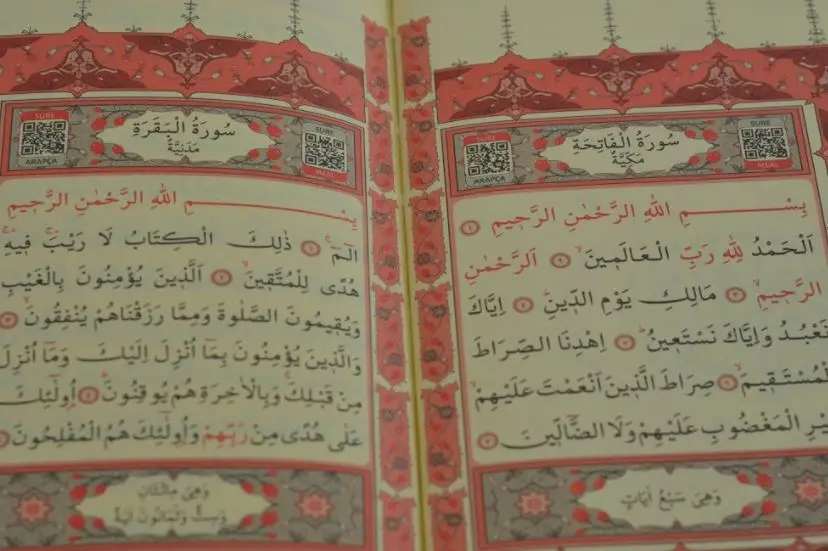 SURE
ARAPÇA
سُورَةُ الْفَاتِحَةِ
مَكِّيَّةٌ
SURE
MEAL
بِسْمِ اللّٰهِ الرَّحْمٰنِ الرَّحٖيمِ ١
اَلْحَمْدُ لِلّٰهِ رَبِّ الْعَالَمٖينَۙ ٢ اَلرَّحْمٰنِ
الرَّحٖيمِۙ ٣ مَالِكِ يَوْمِ الدّٖينِؕ ٤ اِيَّاكَ
نَعْبُدُ وَاِيَّاكَ نَسْتَعٖينُؕ ٥ اِهْدِنَا الصِّرَاطَ
الْمُسْتَقٖيمَۙ ٦ صِرَاطَ الَّذٖينَ اَنْعَمْتَ عَلَيْهِمْۙ
غَيْرِ الْمَغْضُوبِ عَلَيْهِمْ وَلَا الضَّٓالّٖينَ ٧
وَهِيَ سَبْعُ اٰيَاتٍ
SURE
ARAPÇA
سُورَةُ الْبَقَرَةِ
مَدَنِيَّةٌ
SURE
MEAL
بِسْمِ اللّٰهِ الرَّحْمٰنِ الرَّحٖيمِ
الٓمٓۚ ١ ذٰلِكَ الْكِتَابُ لَا رَيْبَۚ فٖيهِۚ
هُدًى لِلْمُتَّقٖينَۙ ٢ اَلَّذٖينَ يُؤْمِنُونَ بِالْغَيْبِ
وَيُقٖيمُونَ الصَّلٰوةَ وَمِمَّا رَزَقْنَاهُمْ يُنْفِقُونَۙ ٣
وَالَّذٖينَ يُؤْمِنُونَ بِمَٓا اُنْزِلَ اِلَيْكَ وَمَٓا اُنْزِلَ
مِنْ قَبْلِكَۚ وَبِالْاٰخِرَةِ هُمْ يُوقِنُونَؕ ٤ اُو۬لٰٓئِكَ
عَلٰى هُدًى مِنْ رَبِّهِمْ وَاُو۬لٰٓئِكَ هُمُ الْمُفْلِحُونَ ٥
وَهِيَ مِائَتَانِ
وَسِتٌّ وَثَمَانُونَ اٰيَةً